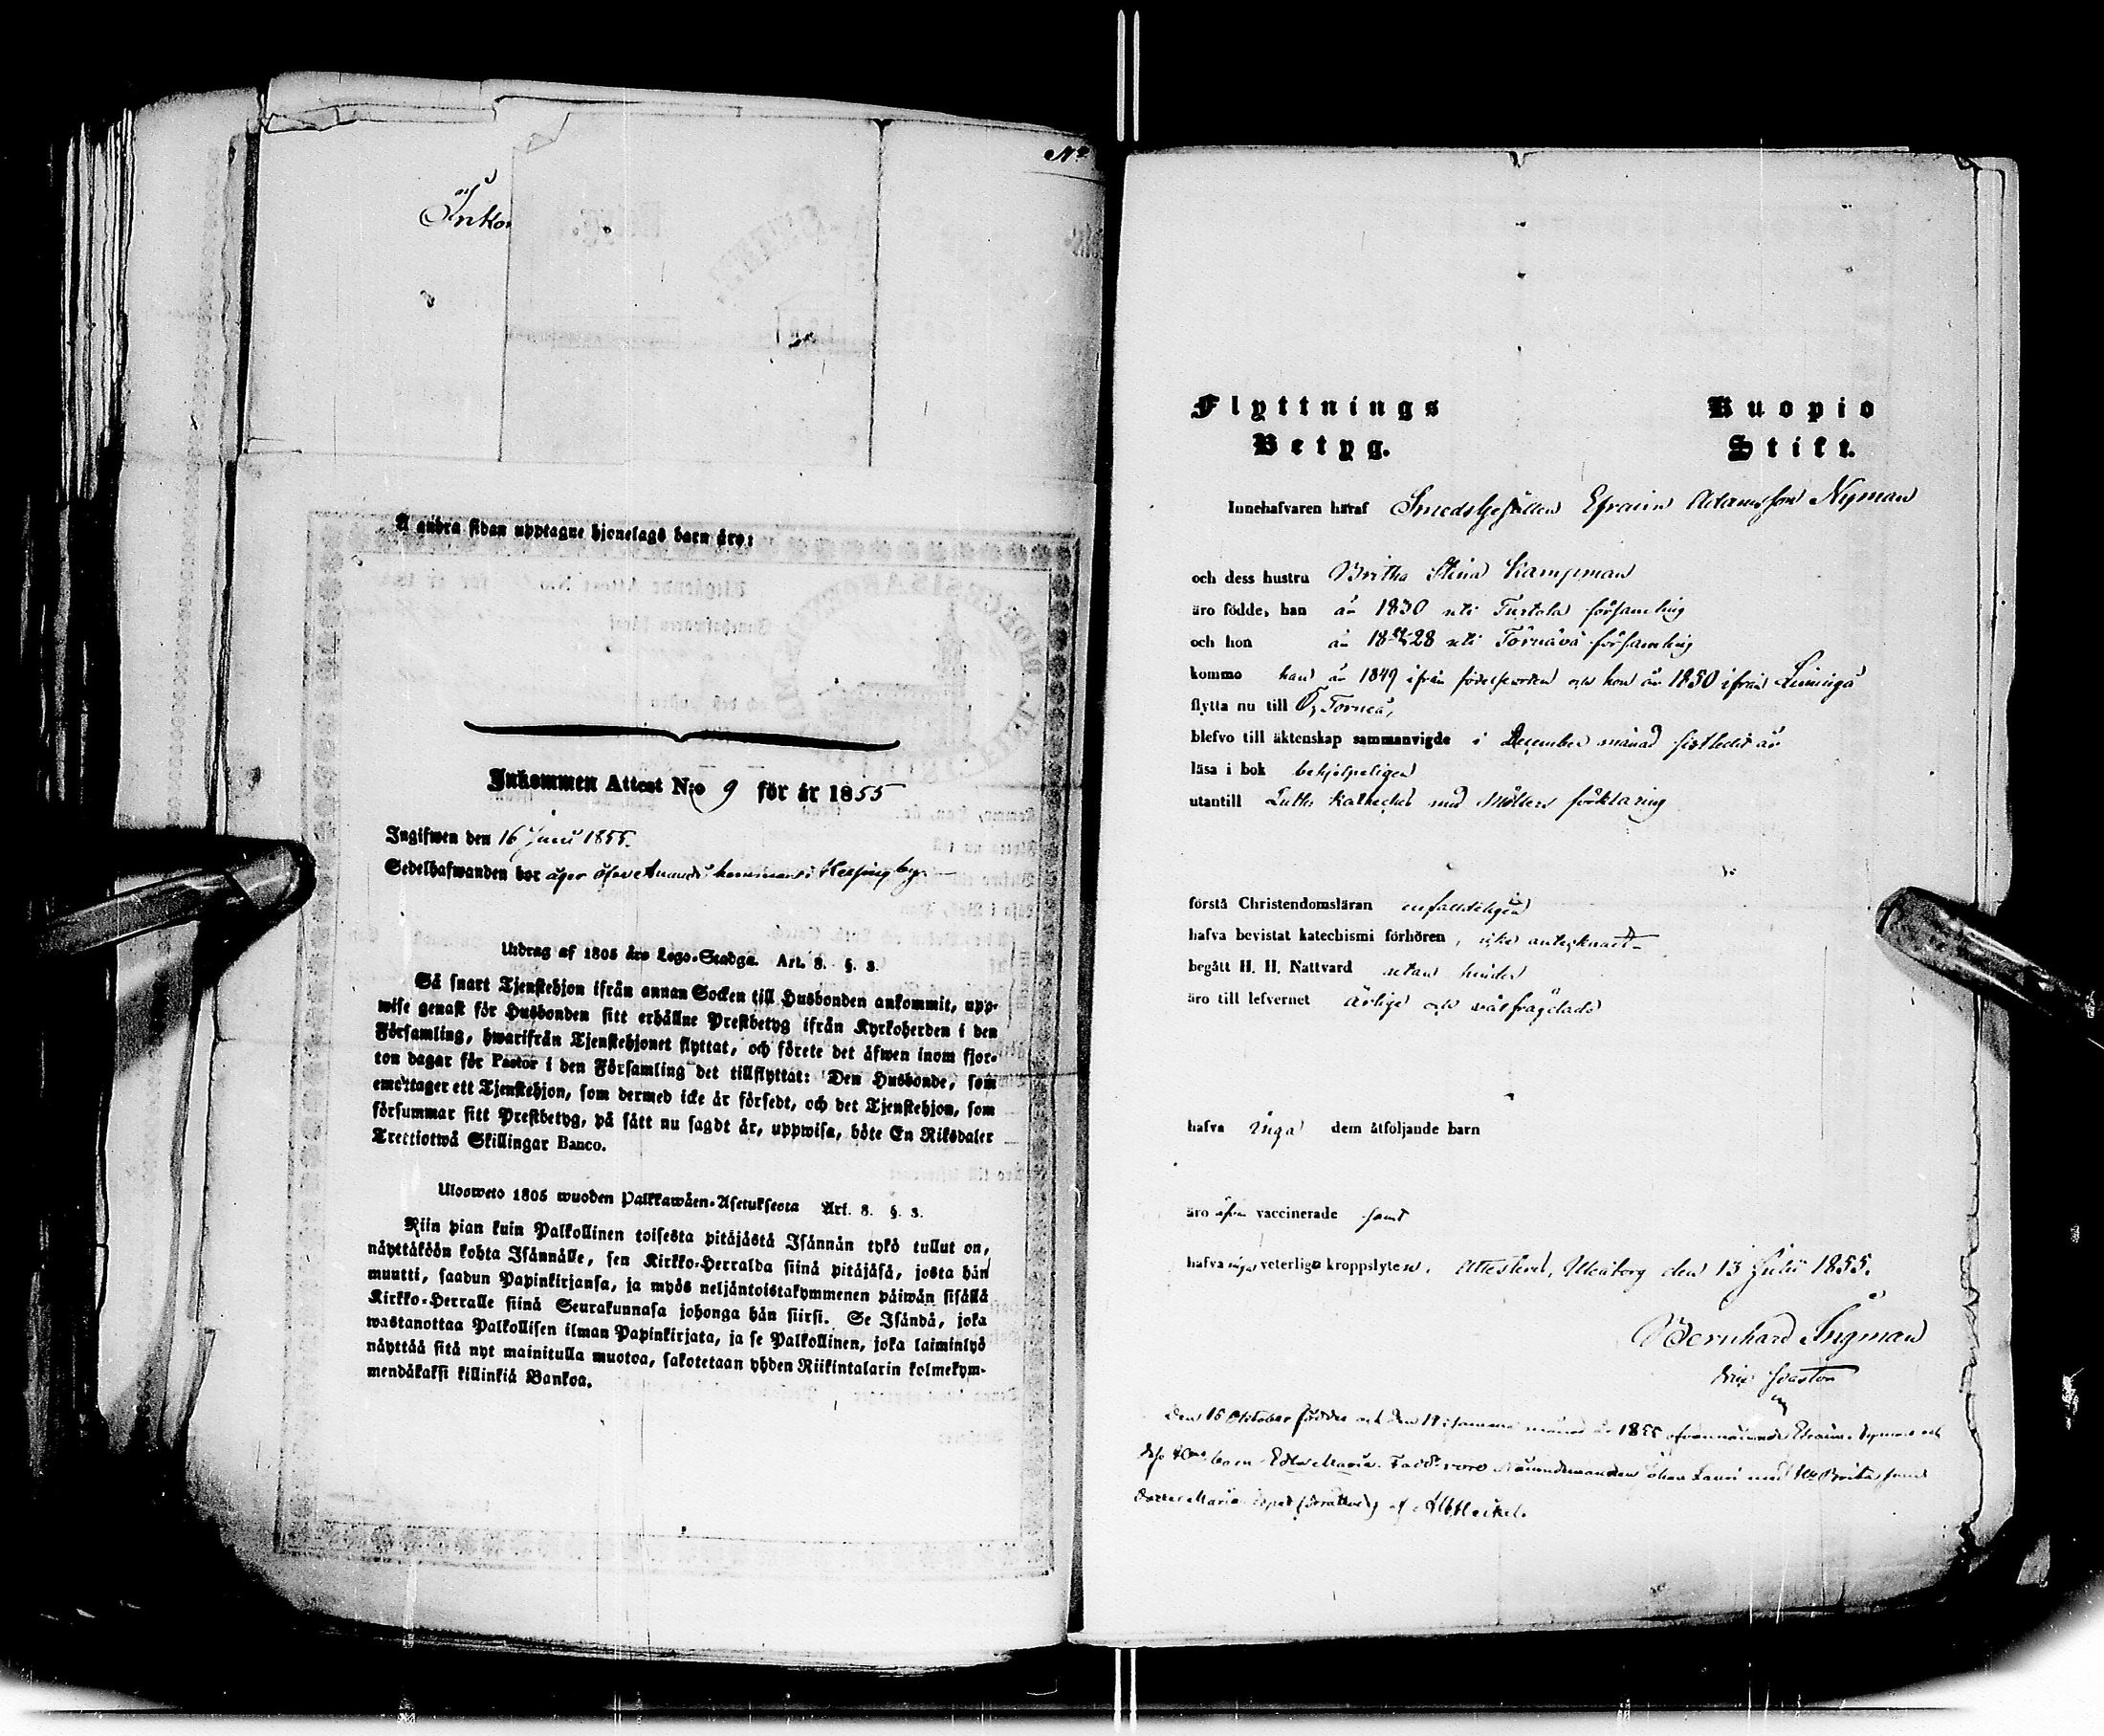 N:o
af
Inko
Å andra sidan upptagne hjonelags barn äro:
Inkommen Attest N:o 9 för år 1855
Ingifwen den 16 Juni 1855.
Sedelhafwanden bor äger hemman i Helsingby
Utdrag af 1805 års Lego-Stadga. Art. 8. §. 3.
Så snart Tjenstehjon ifrån annan Socken till Husbonden ankommit, upp-
wise genast för Husbonden sitt erhållne Prestbetyg ifrån Kyrkoherden i den
Församling, hwarifrån Tjenstehjonet flyttat, och förete det äfwen inom fjor-
ton dagar för Pastor i den Församling det tillflyttat: Den Husbonde, som
emottager ett Tjenstehjon, som dermed icke är försedt, och det Tjenstehjon, som
försummar sitt Prestbetyg, på sätt nu sagdt är, uppwisa, böte En Riksdaler
Trettiotwå Skillingar Banco.
Ulosweto 1805 wuoden Palkkawäen-Asetuksesta Art. 8. §. 3.
Niin pian kuin Palkollinen toisesta pitäjästä Isännän tykö tullut on,
näyttäköön kohta Isännälle, sen Kirkko-Herralda siinä pitäjäsä, josta hän
muutti, saadun Papinkirjansa, ja myös neljäntoistakymmenen päiwän sisällä
Kirkko-Herralle siinä Seurakunnasa johonga hän siirsi. Se Isändä, joka
wastanottaa Palkollisen ilman Papinkirjata, ja se Palkollinen, joka laiminlyö
näyttää sitä nyt mainitulla muotoa, sakotetaan yhden Riikintalarin kolmekym-
mendäkaksi killinkiä Bankoa.
Flyttnings Kuopio
Betyg. Stift.
Innehafvaren häraf Smedsgesällen Efraim Adamsson Nyman
och dess hustru Britha Stina Kampman
äro födde, han år 1830 uti Turtola församling
och hon år 1828 uti Törnävä församling
kommo han år 1849 ifrån födelseorten och hon år 1850 ifrån Limingo
flytta nu till Ö, Torneå,
blefvo till äktenskap sammanvigde i December månad sistledit år
läsa i bok behjelpeligen
utantill Luth. Katheches med Möllers förklaring
förstå Christendomsläran enfaldeligen
hafva bevistat katechismi förhören, icke antecknadt
begått H. H. Nattvard utan hinder
äro till lefvernet ärlige och välfrägdade
hafva inga dem åtföljande barn
äro äfven vaccinerade samt
hafva inga veterliga kroppslyten. Attesterd, Uleåborg den 13 Julii 1855.
Bernhard Ingman
Vice Pastor
Den 15 Oktober föddes och den 17 i samma månad år 1855 ofvannämnde Efraim Nyman och
dess barn Edla Maria. Nämndemannen Johan Lauri med Hu Brita samt
Maria förrättadt af Alb Heikel.